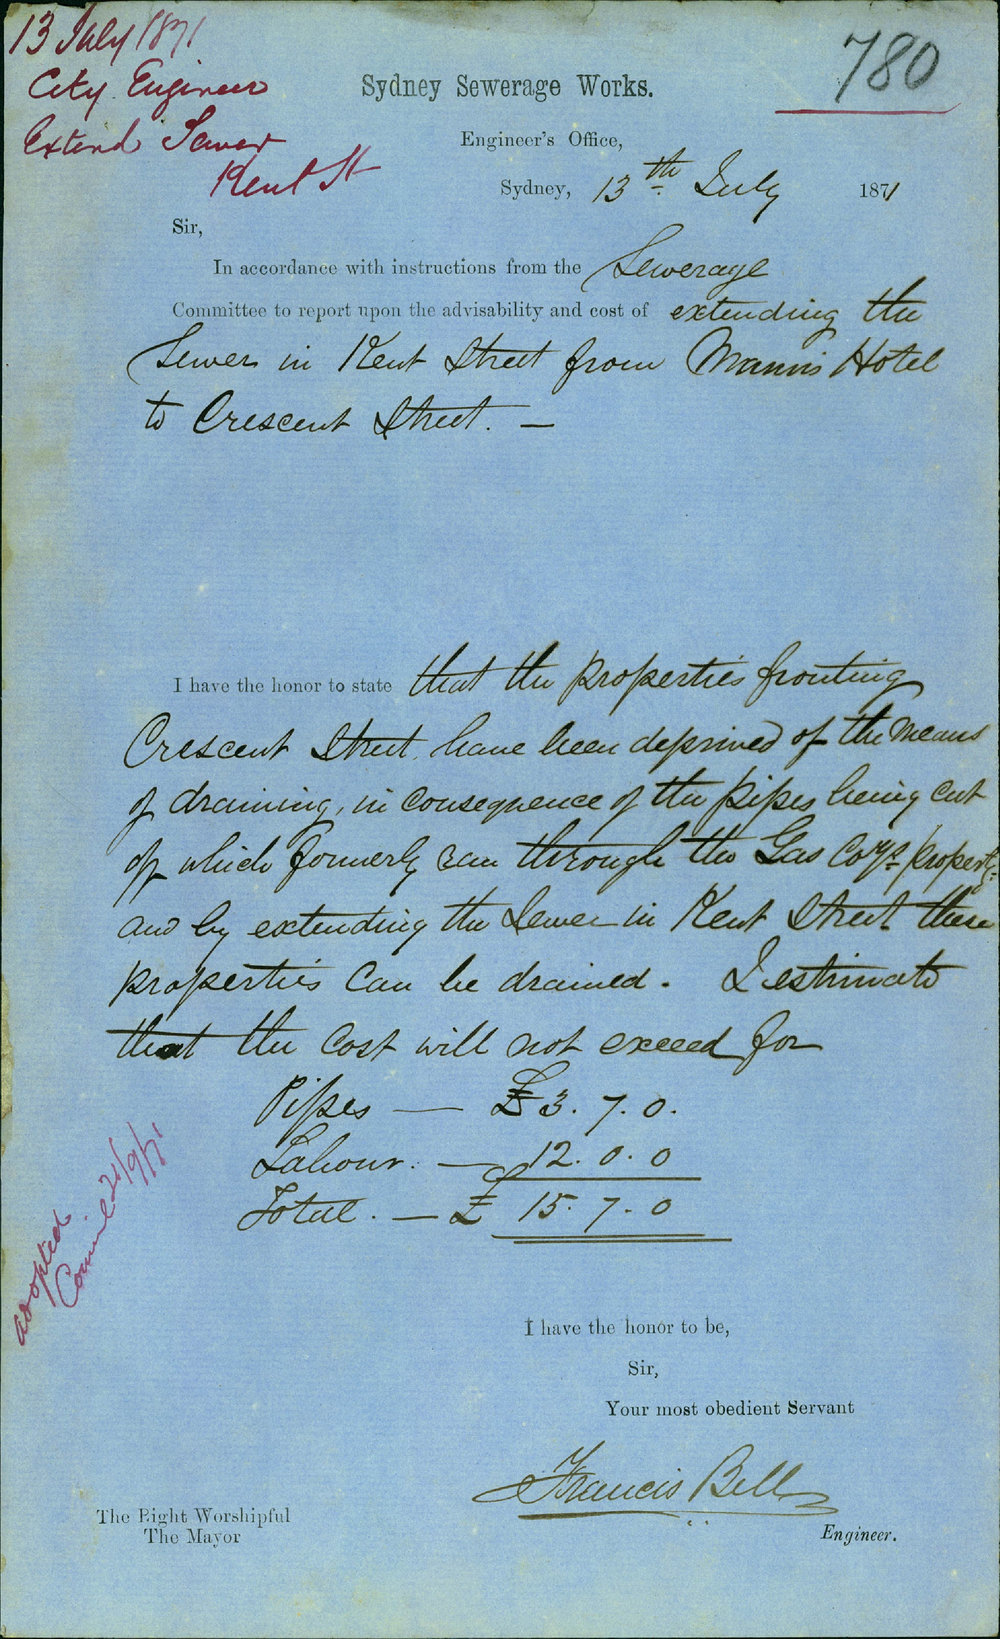 13 July 1871
City Engineer
Extend Sewer
Kent St
780
Sydney Sewerage Works.
Engineer's Office,
Sydney, 13th July 1871
Sir,
In accordance with instructions from the Sewerage
Committee to report upon the advisability and cost of extending the
Sewer in Kent Street from Mann's Hotel
to Crescent Street. —
I have the honor to state that the properties fronting
Crescent Street, have been deprived of the means
of draining, in consequence of the pipes being cut
off which formerly ran through the Gas Coys property
and by extending the Sewer in Kent Street these
properties can be drained. I estimate
that the cost will not exceed for
Pipes — £3.7.0.
Labour. — 12.0.0
Total. — £ 15.7.0
adopted.
Council 21/9/71
I have the honor to be,
Sir,
Your most obedient Servant
Francis Bell
Engineer.
The Right Worshipful
The Mayor